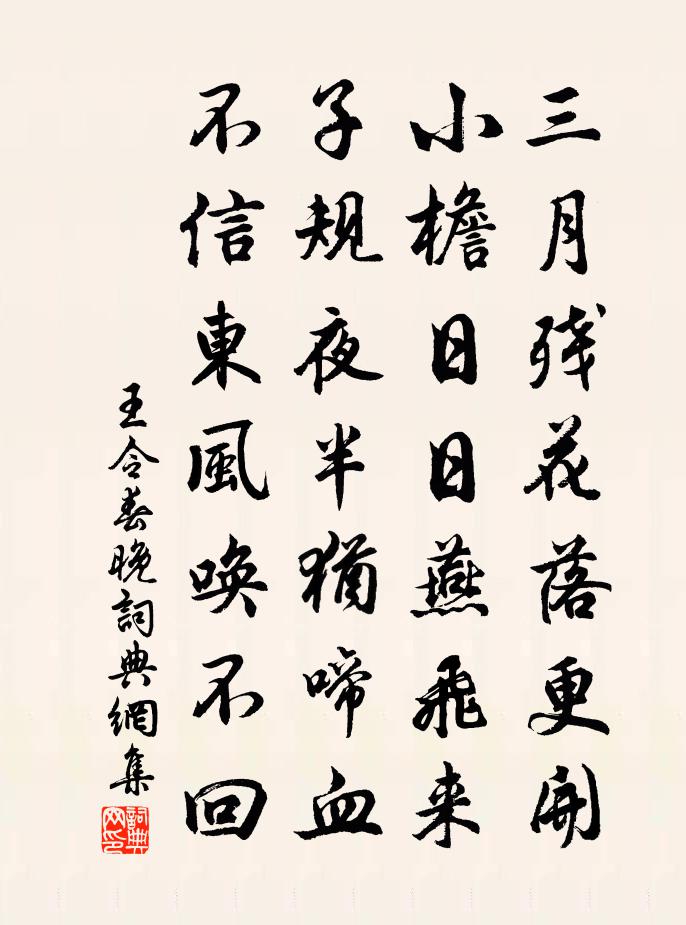 三月残花落更開
小檐日日燕飛来
子規夜半猶啼血
不信東風唤不回
王令春晚詞典網集
詞典网印